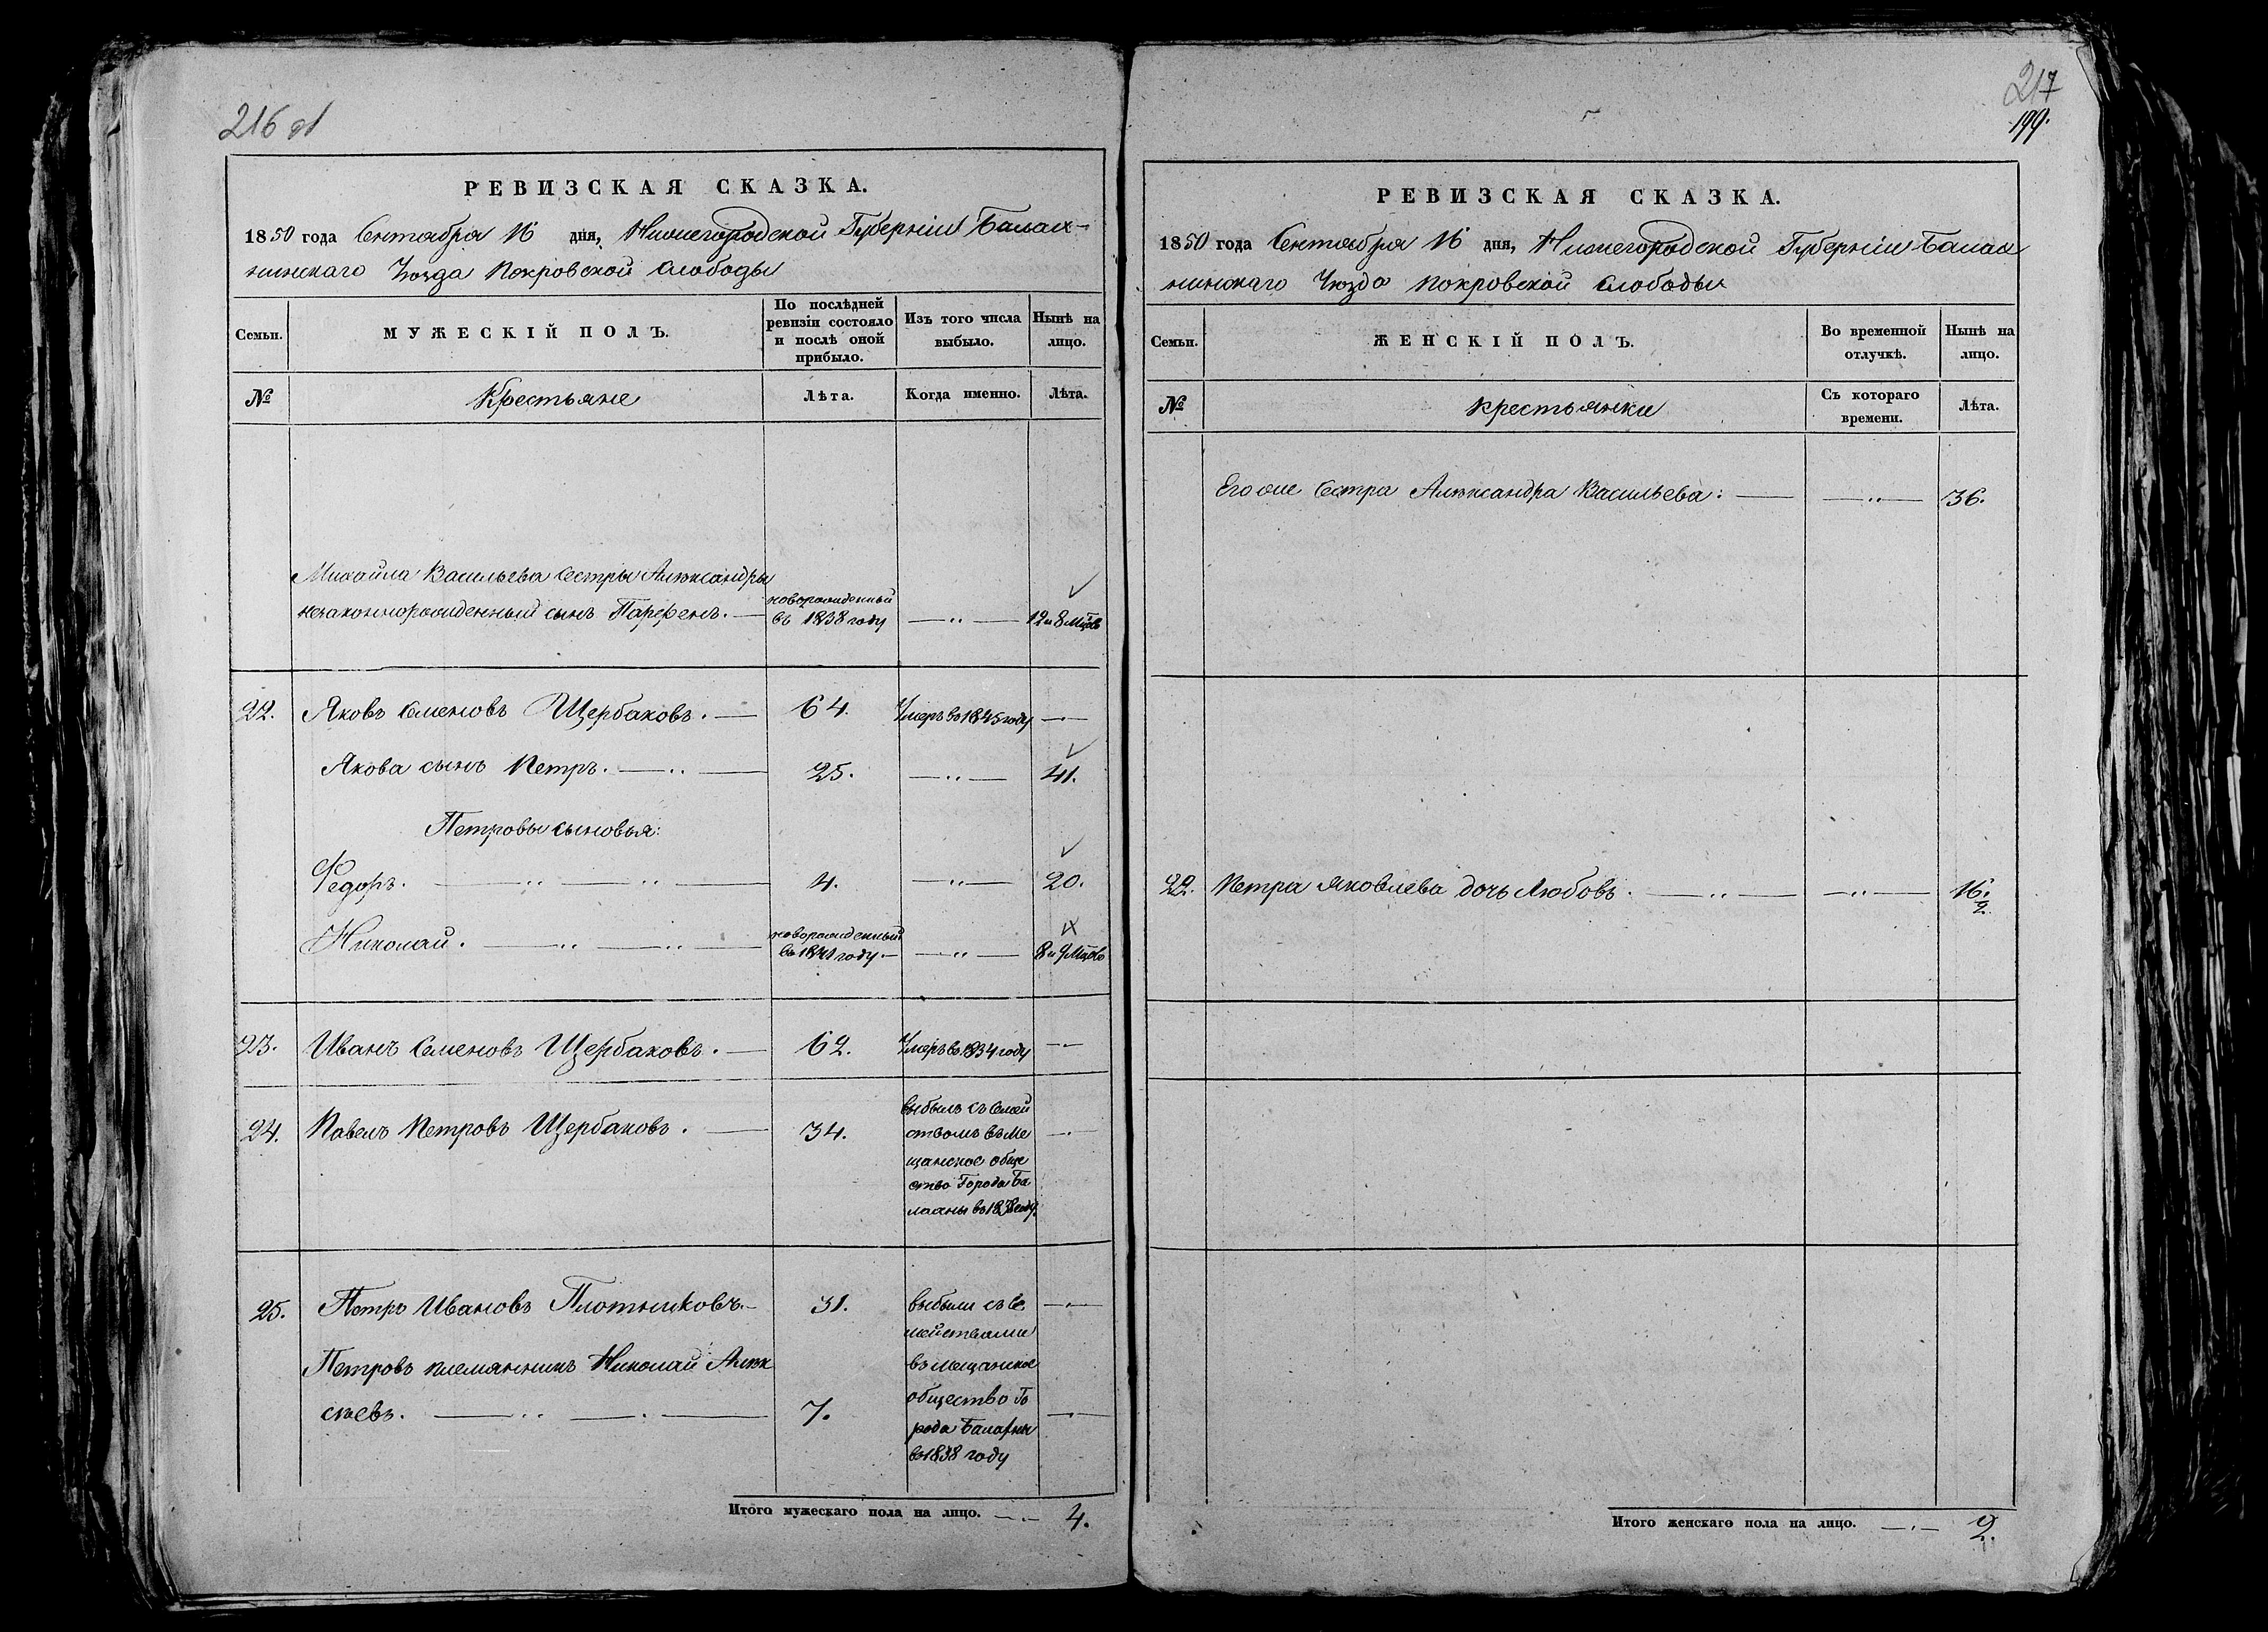 216 об
РЕВИЗСКАЯ СКАЗКА.
1850 года Сентября 16 дня, Нижегородской Губерніи Балах-
нинскаго Уѣзда Покровской Слободы
Семьи.
МУЖЕСКІЙ ПОЛЪ.
По послѣдней
ревизіи состояло
и послѣ оной
прибыло.
Изъ того числа
выбыло.
Нынѣ на
лицо.
№
Крестьяне
Лѣта.
Когда именно.
Лѣта.
Михайла Васильева Сестры Александры
незаконнорожденный сынъ Парфенъ.
новорожденный
въ 1838 году
12 и 8 мцовъ
22. Яковъ Семеновъ Щербаковъ. 64. Умеръ въ 1845 году
Якова сынъ Петръ. 25. 41.
Петровы сыновья:
Федоръ. 4. 20.
Николай.
новорожденный
въ 1841 году.
8 и 9 мцовъ
23. Иванъ Семеновъ Щербаковъ. 62. Умеръ въ 1834 году
24. Павелъ Петровъ Щербаковъ. 34.
выбылъ съ Семей
ствомъ въ Ме
щанское обще
ство Города Ба
лахны въ 1838 году.
25. Петръ Ивановъ Плотниковъ. 31.
выбыли съ Се
мействами
Петровъ племянникъ Николай Алек
въ мещанское
сѣевъ. 7.
общество Го
рода Балахны
въ 1838 году
Итого мужескаго пола на лицо. 4.
217
199.
РЕВИЗСКАЯ СКАЗКА.
1850 года Сентября 16 дня, Нижегородской Губерніи Балах
нинскаго Уѣзда Покровской Слободы
Семьи.
ЖЕНСКІЙ ПОЛЪ.
Во временной
отлучкѣ.
Нынѣ на
лицо.
№
Крестьянки
Съ котораго
времени.
Лѣта.
Его же Сестра Александра Васильева: 36.
22. Петра Яковлева дочь Любовь. 16.
2.
Итого женскаго пола на лицо. 2.